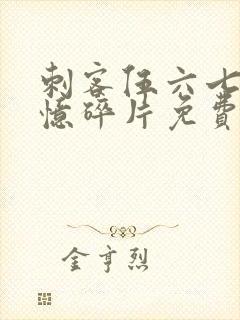 刺客伍六七
憶碎片免費
金亨烈